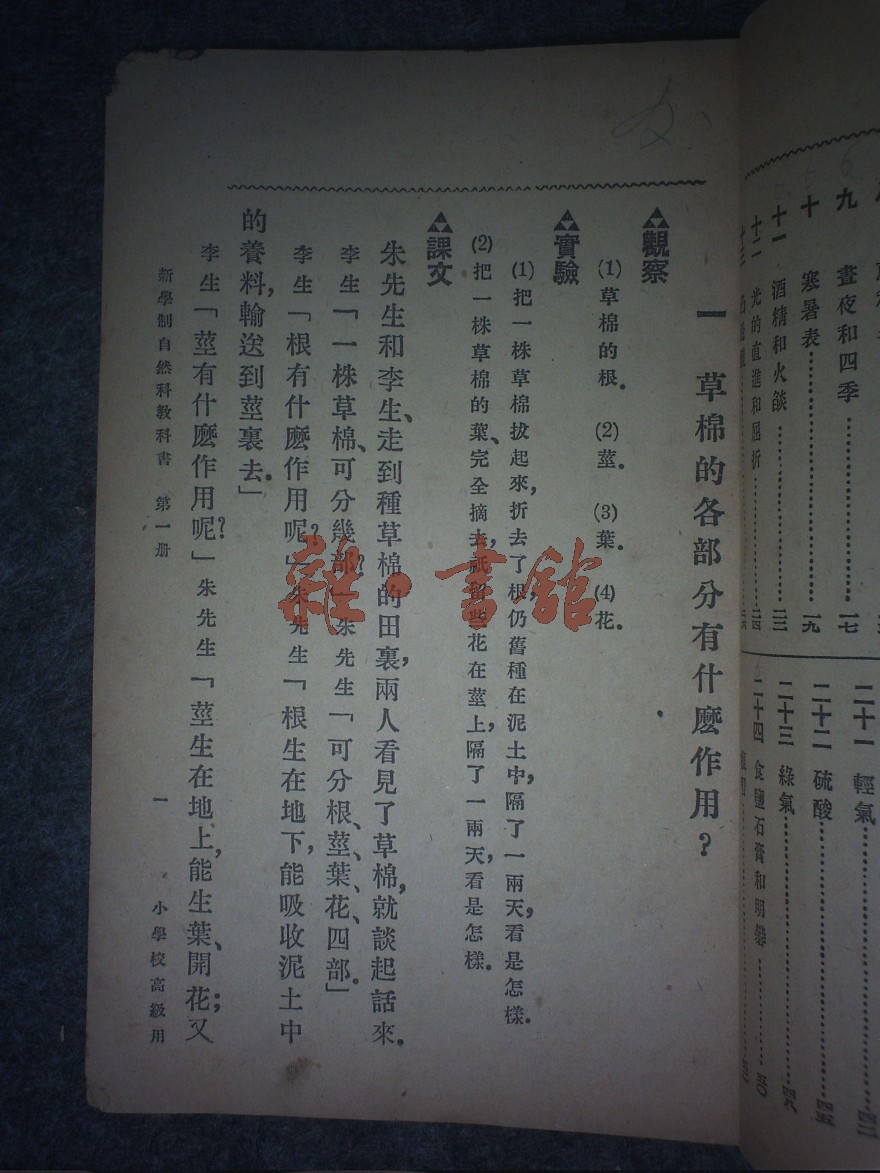 九 晝夜和四季……一七
十 寒暑表……一九
十一 酒精和火燄……二三
十二 光的直進和屈折……二四
二十一 輕氣……四二
二十二 硫酸……四五
二十三 綠氣……四八
二十四 食鹽石膏和明礬……五〇
一 草棉的各部分有什麽作用?
觀察
(1)草棉的根。 (2)莖。 (3)葉。 (4)花。
實驗
(1)把一株草棉拔起來,折去了根,仍舊種在泥土中,隔了一兩天,看是怎樣。
(2)把一株草棉的葉、完全摘去,祇留些花在莖上,隔了一兩天,看是怎樣。
課文
朱先生和李生、走到種草棉的田裏,兩人看見了草棉,就談起話來。
李生「一株草棉、可分幾部?」朱先生「可分根、莖、葉、花、四部。」
李生「根有什麽作用呢?」朱先生「根生在地下,能吸收泥土中
的養料,輸送到莖裏去。」
李生「莖有什麽作用呢?」朱先生「莖生在地上,能生葉、開花;又
新學制自然科教科書 第一册 一 小學校高級用
雜·書館